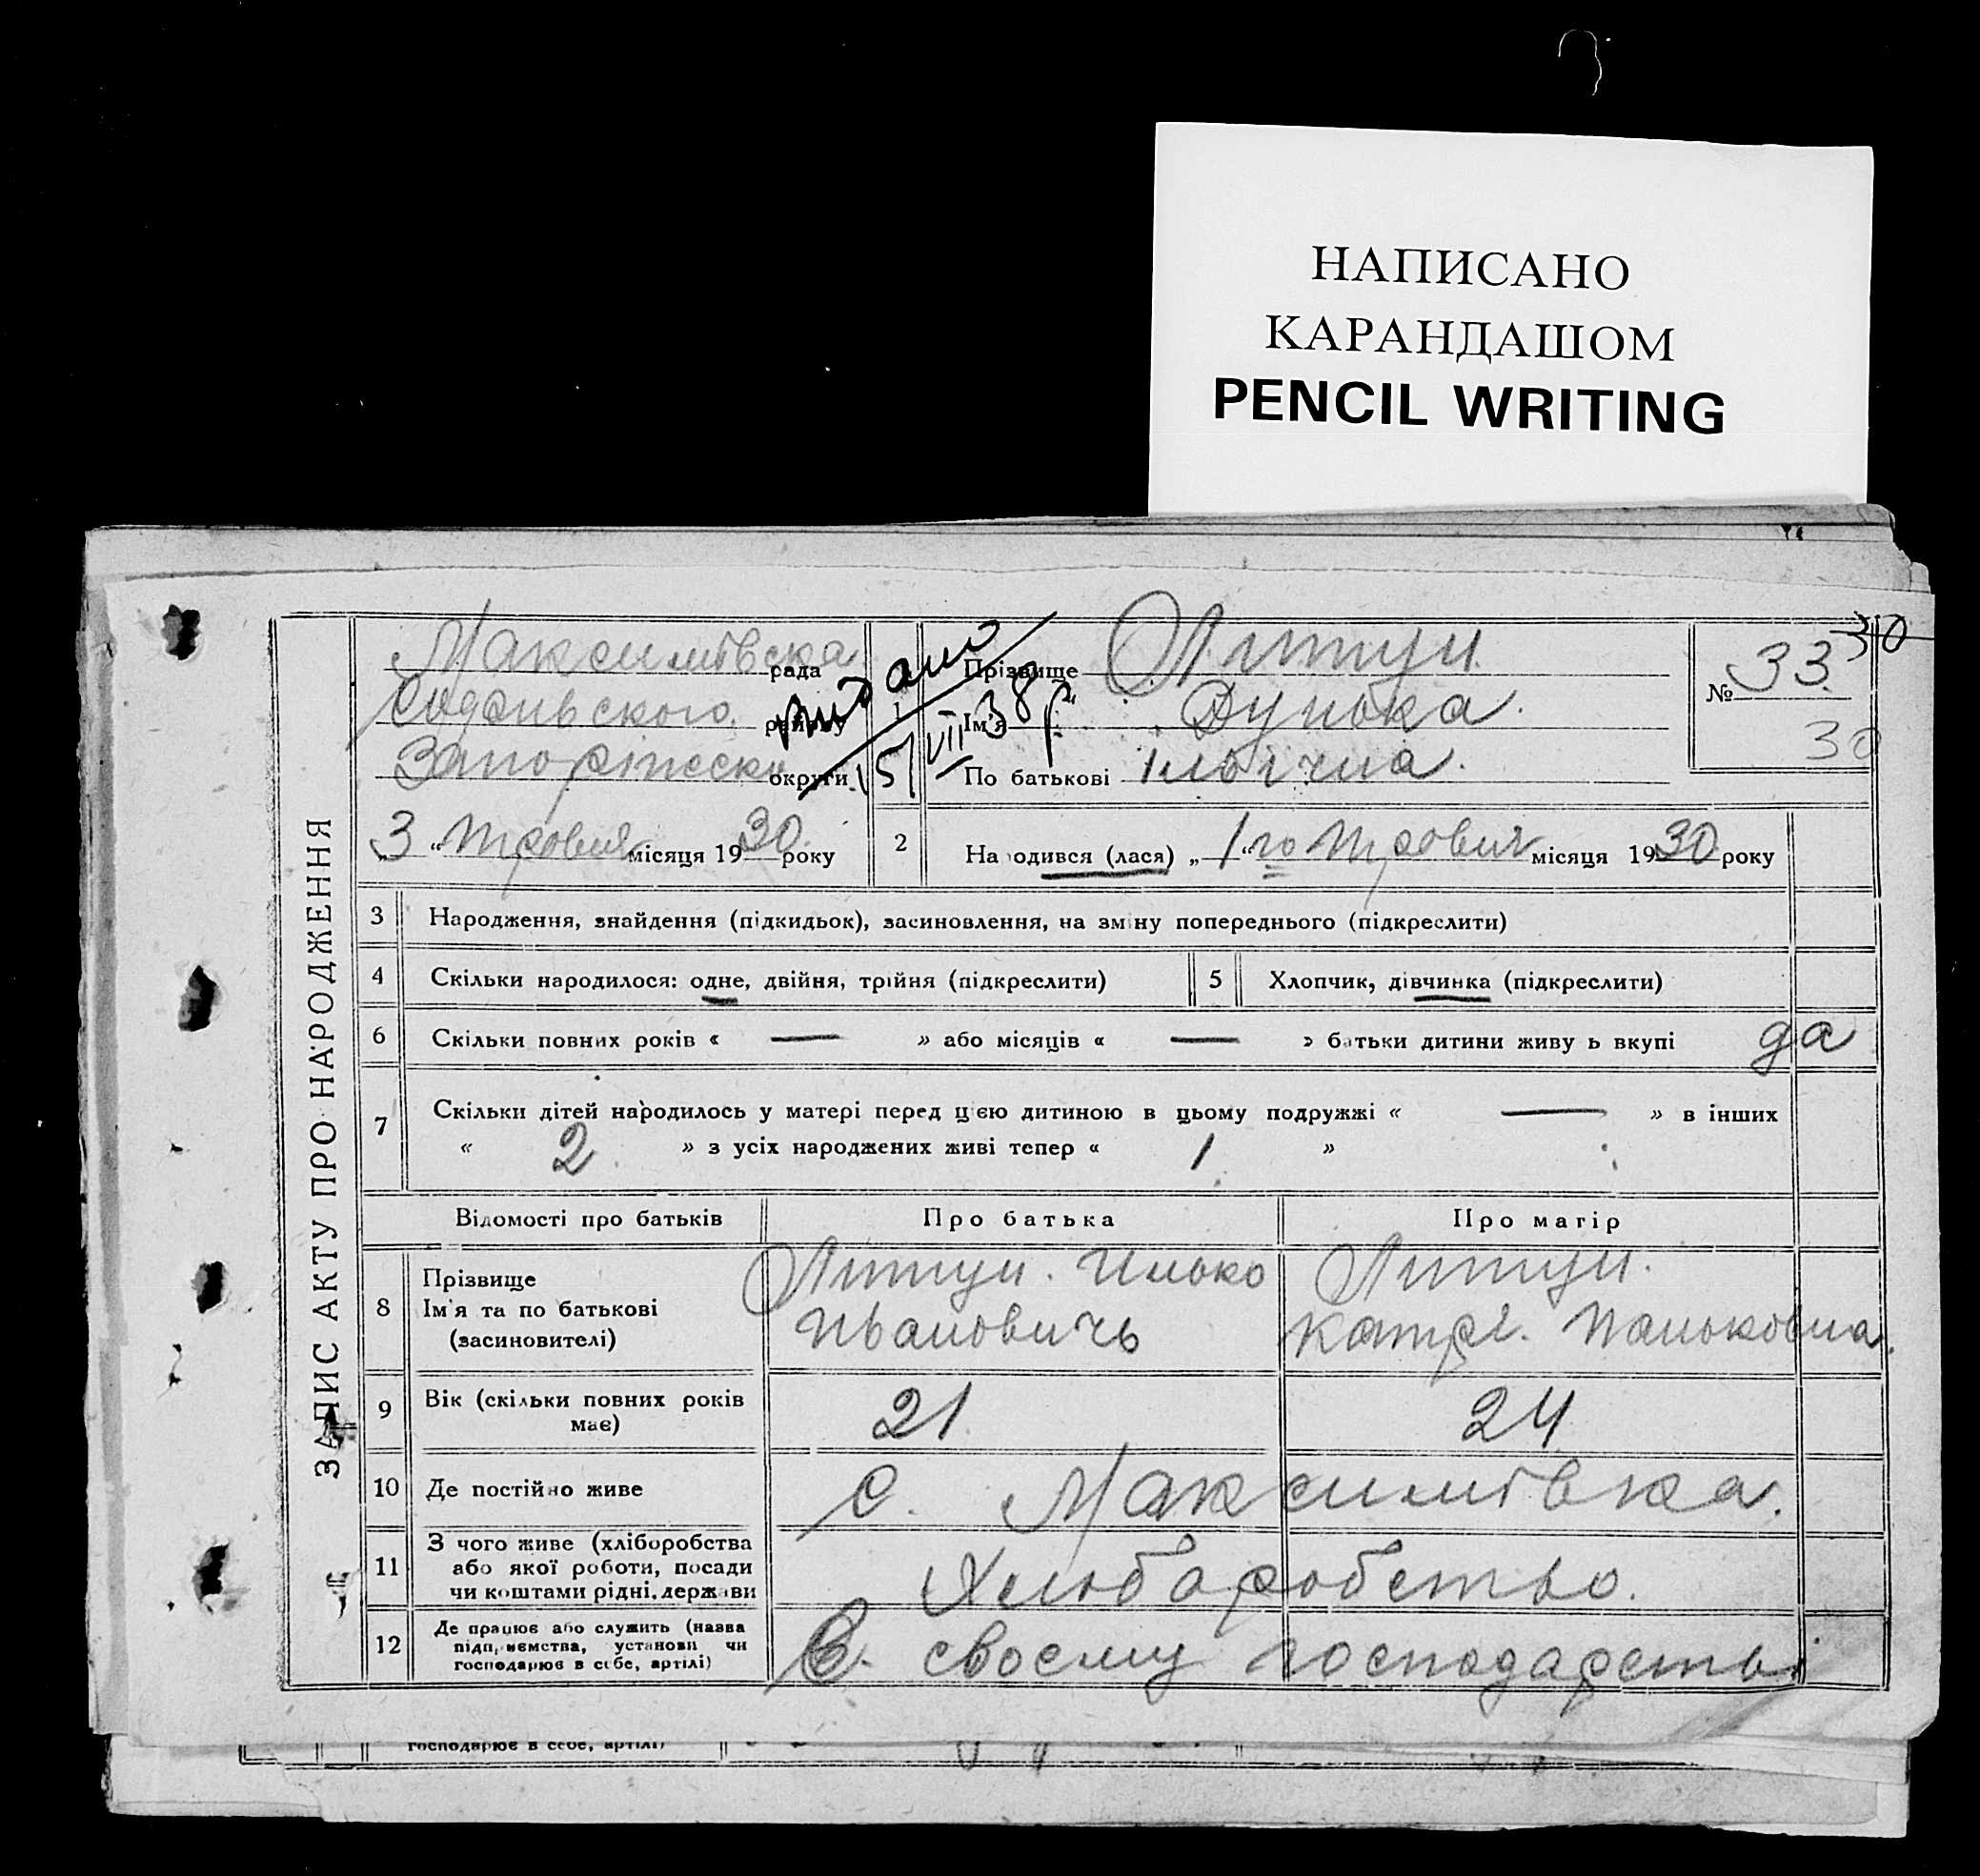 НАПИСАНО
КАРАНДАШОМ
PENCIL WRITING
ЗАПИС АКТУ ПРО НАРОДЖЕННЯ
Максимівска рада
району
округи
видано
15/VII 38р
„3“ Тровня місяця 1930 року
1
Прізвище Литун
Ім'я Дунька
По батькові Ількічна
№ 33
30
30
2 Народився (лася) „1“го Тровня місяця 1930 року
3 Народження, знайдення (підкидьок), засиновлення, на зміну попереднього (підкреслити)
4 Скільки народилося: одне, двійня, трійня (підкреслити)
5 Хлопчик, дівчинка (підкреслити)
6 Скільки повних років « — » або місяців « — » батьки дитини живу ь вкупі да
7 Скільки дітей народилось у матері перед цією дитиною в цьому подружжі « — » в інших
« 2 » з усіх народжених живі тепер « 1 »
Відомості про батьків Про батька Про матір
8 Прізвище
Ім'я та по батькові
(засиновителі)
Литун. Илько
Ивановичь
Литун.
Катря. Паньковна.
9 Вік (скільки повних років
має)
21 24
10 Де постійно живе с. Максимівка.
11 З чого живе (хліборобства
або якої роботи, посади
чи коштами рідні, держави
Хлюборобство.
12 Де працює або служить (назва
підприємства, установи чи
господарює в себе, артілі)
В. своєму господарстьві
господарює в себе, артілі)